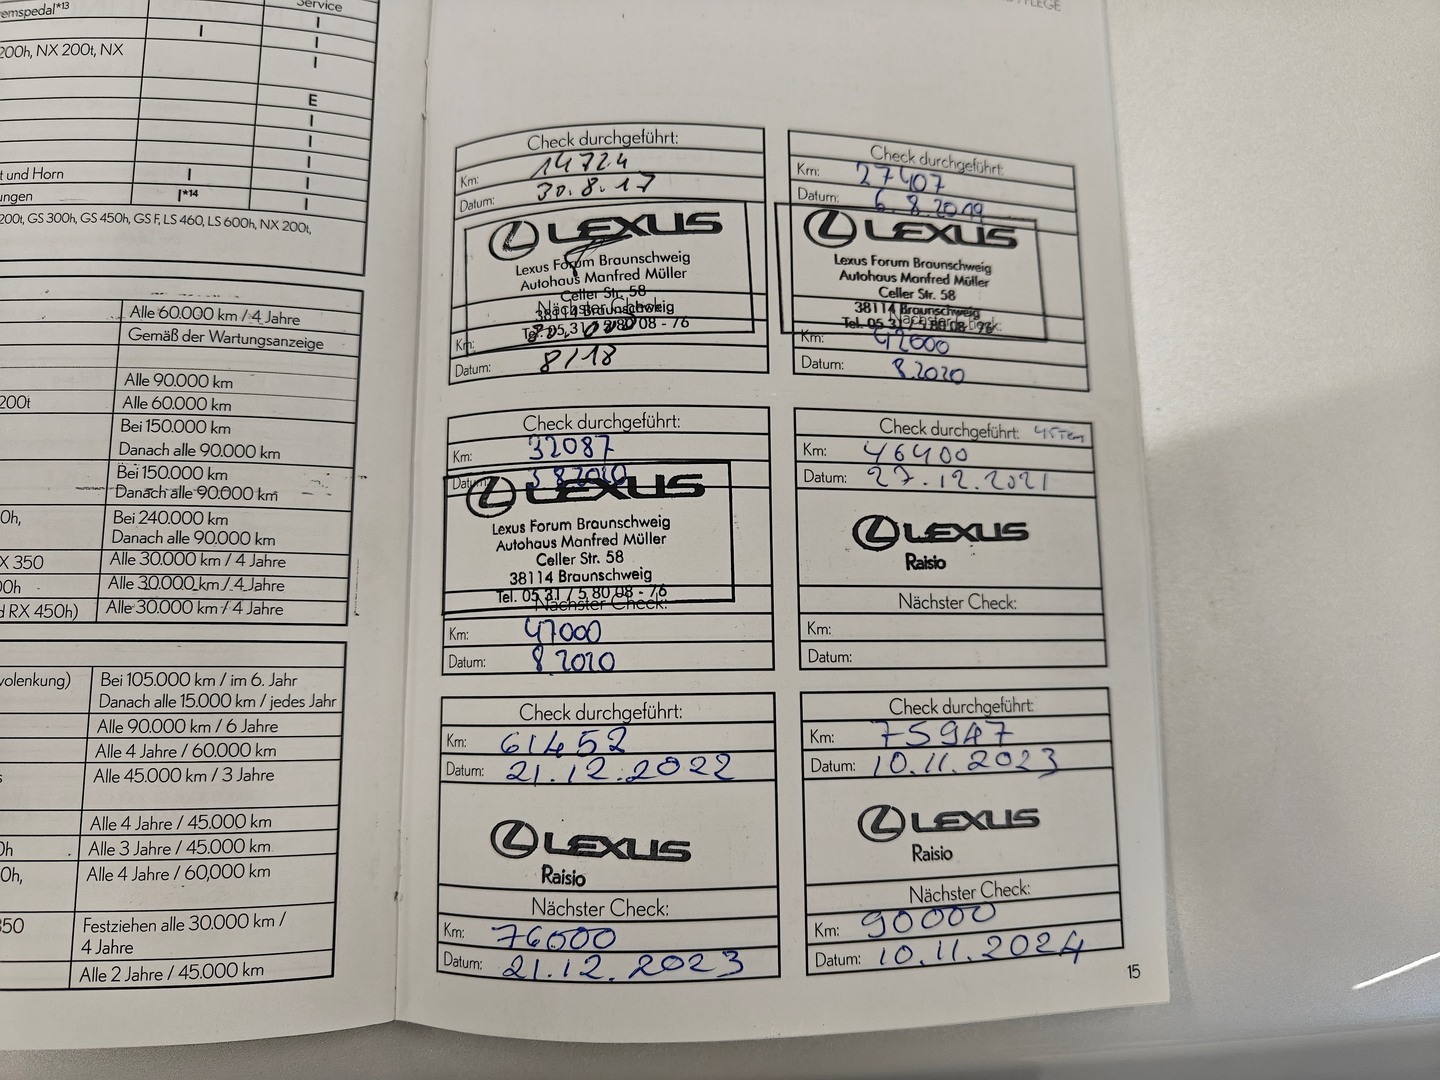 remspedal*13
Service
I
I
I
200h, NX 200t, NX
I
E
I
I
I
t und Horn
I
I
ungen
I*14
I
200t, GS 300h, GS 450h, GS F, LS 460, LS 600h, NX 200t,
Alle 60.000 km / 4 Jahre
Gemäß der Wartungsanzeige
Alle 90.000 km
200t
Alle 60.000 km
Bei 150.000 km
Danach alle 90.000 km
Bei 150.000 km
Danach alle 90.000 km
0h,
Bei 240.000 km
Danach alle 90.000 km
X 350
Alle 30.000 km / 4 Jahre
00h
Alle 30.000 km / 4 Jahre
d RX 450h)
Alle 30.000 km / 4 Jahre
volenkung)
Bei 105.000 km / im 6. Jahr
Danach alle 15.000 km / jedes Jahr
Alle 90.000 km / 6 Jahre
Alle 4 Jahre / 60.000 km
s
Alle 45.000 km / 3 Jahre
Alle 4 Jahre / 45.000 km
0h
Alle 3 Jahre / 45.000 km
0h,
Alle 4 Jahre / 60,000 km
350
Festziehen alle 30.000 km /
4 Jahre
Alle 2 Jahre / 45.000 km
PFLEGE
Check durchgeführt:
Km: 14724
Datum: 30.8.17
LEXUS
Lexus Forum Braunschweig
Autohaus Manfred Müller
Celler Str. 58
Nächster Check:
38114 Braunschweig
Tel. 05 31 / 5 80 08 - 76
Km:
Datum: 8/18
Check durchgeführt:
Km: 27407
Datum: 6.8.2019
LEXUS
Lexus Forum Braunschweig
Autohaus Manfred Müller
Celler Str. 58
38114 Braunschweig
Nächster Check:
Tel. 05 31 / 5 80 08 - 76
Km: 42000
Datum: 8.2020
Check durchgeführt:
Km: 32087
Datum: 3.8.2020
LEXUS
Lexus Forum Braunschweig
Autohaus Manfred Müller
Celler Str. 58
38114 Braunschweig
Tel. 05 31 / 5 80 08 - 76
Nächster Check:
Km: 47000
Datum: 8.2020
Check durchgeführt:
Km: 46400
Datum: 27.12.2021
LEXUS
Raisio
Nächster Check:
Km:
Datum:
Check durchgeführt:
Km: 61452
Datum: 21.12.2022
LEXUS
Raisio
Nächster Check:
Km: 76000
Datum: 21.12.2023
Check durchgeführt:
Km: 75947
Datum: 10.11.2023
LEXUS
Raisio
Nächster Check:
Km: 90000
Datum: 10.11.2024
15